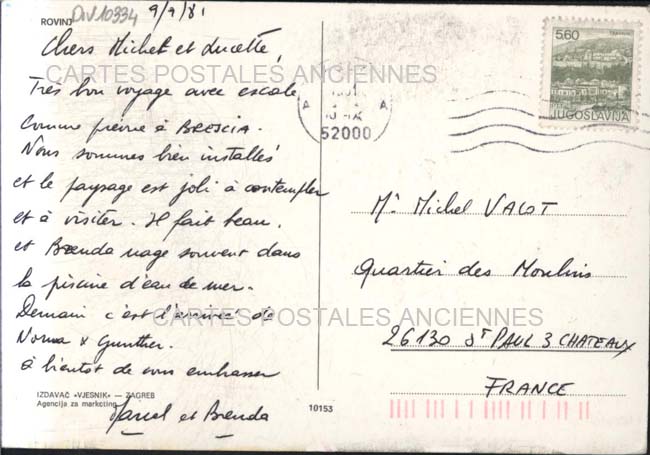 ROVINJ
DIV10334
9/9/81
Chers Michel et Lucette,
CARTES POSTALES ANCIENNES
Très bon voyage avec escale
comme prévue à BRESCIA.
Nous sommes bien installés
et le paysage est joli à contempler
et à visiter. Il fait beau.
et Brenda nage souvent dans
la piscine d'eau de mer.
Demain c'est l'arrivée de
CARTES POSTALES ANCIENNES
Norma & Gunther.
à bientôt de vous embrasser
Marcel et Brenda
IZDAVAČ »VJESNIK« — ZAGREB
Agencija za marketing
10153
A A
52000
5,60
JUGOSLAVIJA
Mr Michel VALOT
Quartier des Moulins
26130 ST PAUL 3 CHATEAUX
FRANCE